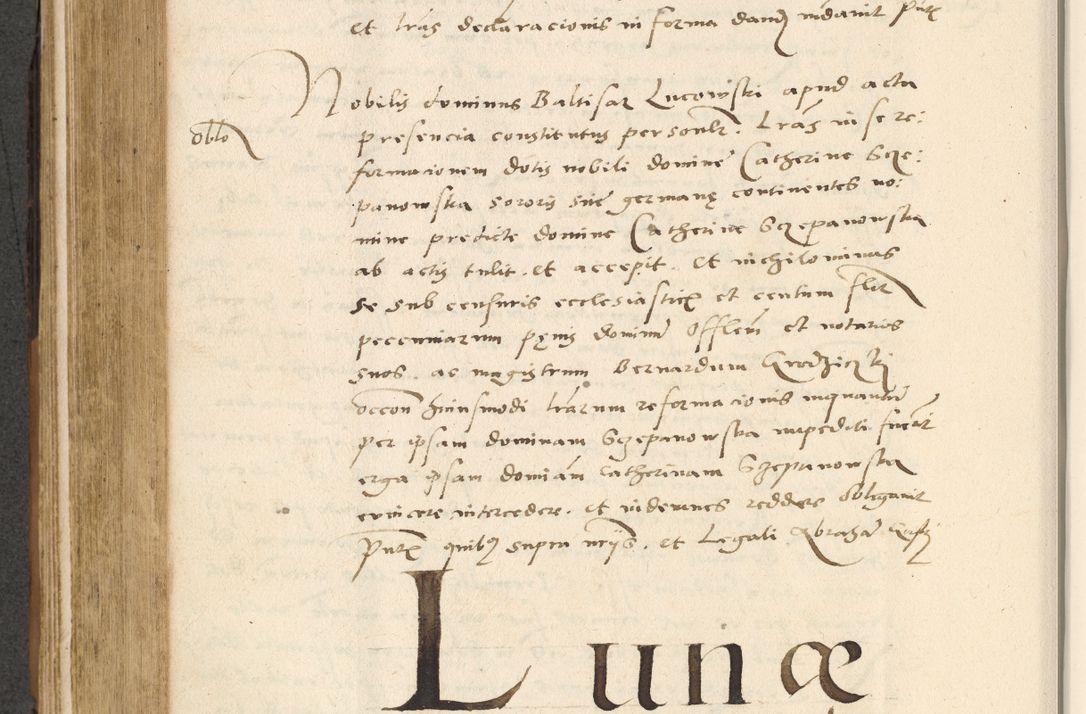 et lras declaracionis in forma dand mdavit Pntz
Nobilis dominus Baltisar Lucowski apud acta
oblo
presencia constitutus personlr. Lras in se re:
formacionem dotis nobili domine Catherine Scze:
panowska sororis sue germanę continentes no:
mine predicte domine Catherine Sczepanowska
ab actis tulit et accepit. Et nichilominus
se sub censuris ecclesiastic et centum flor
pecuniarum pęnis dominum Offlem et notarios
suos. ac magistrum Bernardum
occon huiusmodi lrarum reformacionis inquantum
per ipsam dominam Sczepanowska impediti fuerit
erga ipsam dominam Catherinam Sczepanowska
evincere intercedere. et indemnes reddere obligavit
Pntz quibus supra ttijs. et Legali Abraham
Lunæ